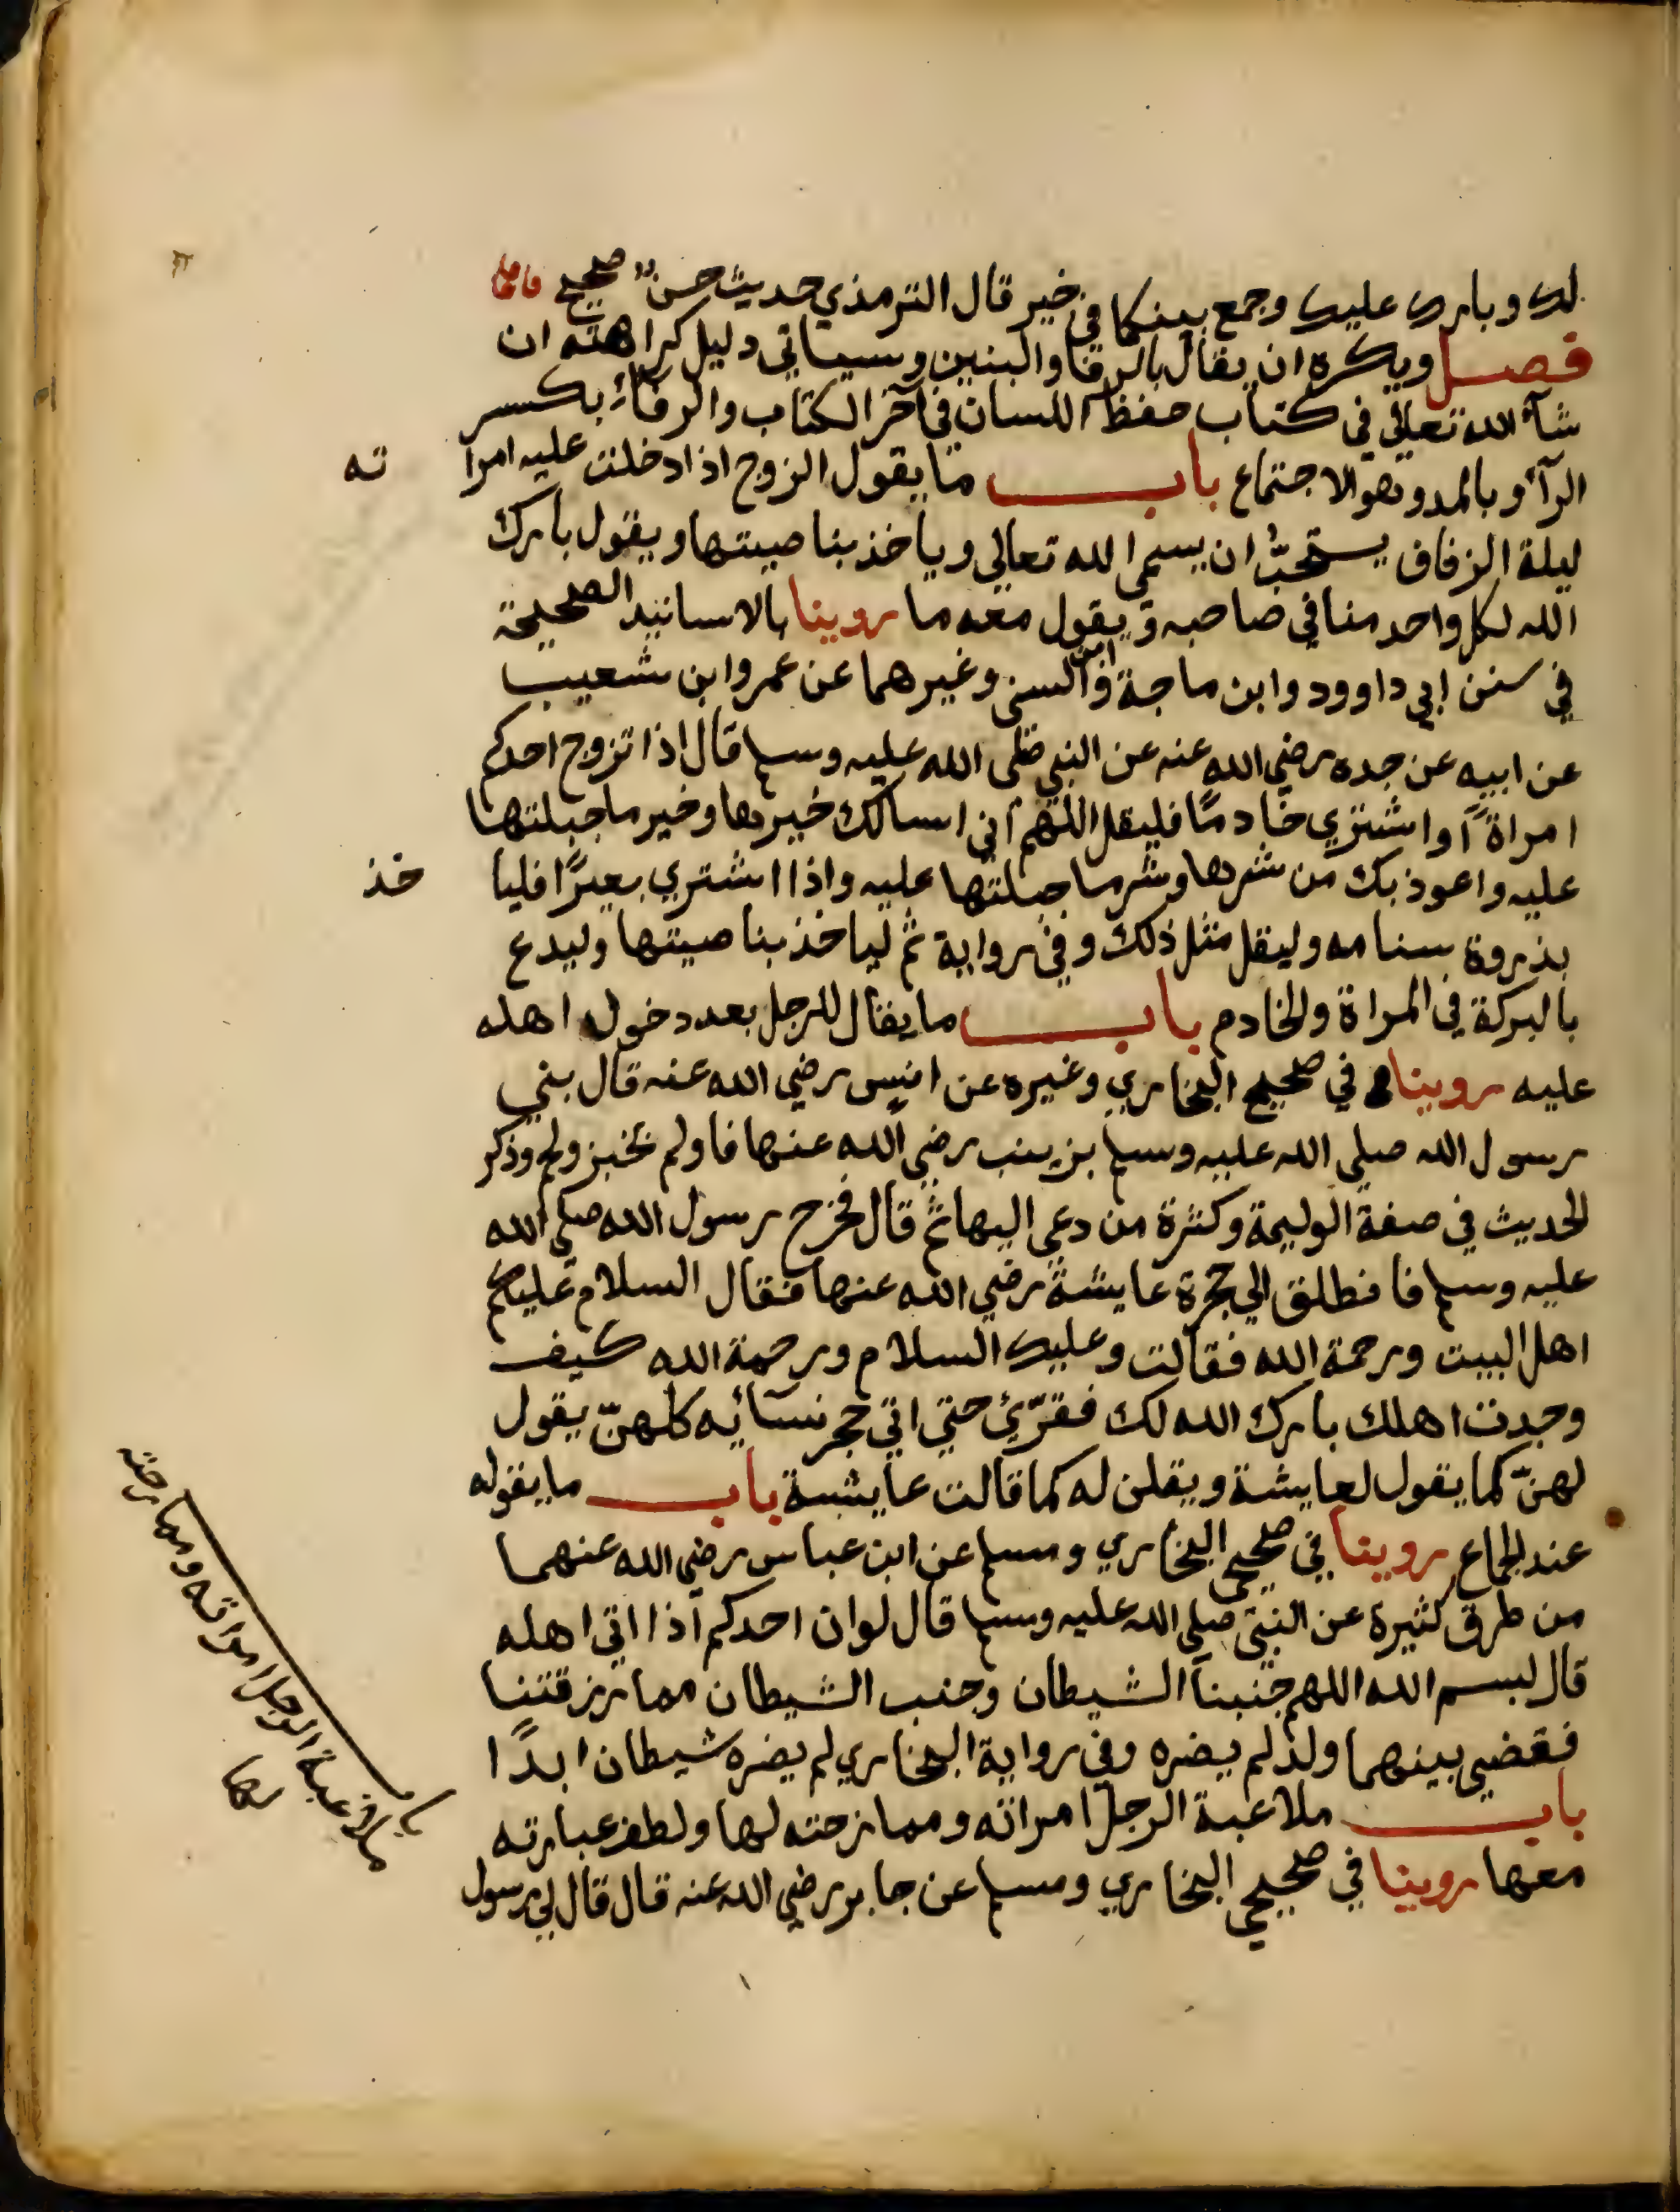 لك وبارك عليك وجمع بينكما في خير قال الترمذي حديث حسن صحيح
فصل ويكره ان يقال بالرفا والبنين وسياتي دليل كراهته ان
شآء الله تعالى في كتاب حفظ اللسان في آخر الكتاب والرفاء بكسر
الرآء وبالمد وهو الاجتماع باب ما يقول الزوج اذا ادخلت عليه امرا ته
ليلة الزفاف يستحبّ ان يسمي الله تعالي وياخذ بناصيتها ويقول بارك
الله لكل واحد منا في صاحبه ويقول معه ما روينا بالاسانيد الصحيحة
في سنن ابي داوود وابن ماجة وابن السني وغيرهما عن عمرو ابن شعيب
عن ابيه عن جده رضي الله عنه عن النبي صلى الله عليه وسلم قال اذا تزوج احدكم
امراةً او اشتري خادمًا فليقل اللهم اني اسالك خيرها وخير ما جبلتها
عليه واعوذ بك من شرها وشر ما جبلتها عليه واذا اشتري بعيرًا فليا خذ
بذروة سنامه وليقل مثل ذلك وفي رواية ثم لياخذ بناصيتها وليدع
بالبركة في المراة والخادم باب ما يقال للرجل بعد دخول اهله
عليه روينا في صحيح البخاري وغيره عن انيس رضي الله عنه قال بني
رسول الله صلي الله عليه وسلم بزينب رضي الله عنها فاولم بخبز ولحم وذكر
الحديث في صفة الوليمة وكثرة من دعي اليها ثم قال فخرج رسول الله صلي الله
عليه وسلم فانطلق الي حجرة عايشة رضي الله عنها فقال السلام عليكم
اهل البيت ورحمة الله فقالت وعليك السلام ورحمة الله كيف
وجدت اهلك بارك الله لك فقرّي حتي اتي حجر نسآئه كلهنّ يقول
لهنّ كما يقول لعايشة ويقلن له كما قالت عايشة باب ما يقوله
عند الجماع روينا في صحيحي البخاري ومسلم عن ابن عباس رضي الله عنهما
من طرق كثيرة عن النبي صلي الله عليه وسلم قال لو ان احدكم اذا اتي اهله
قال بسم الله اللهم جنبنا الشيطان وجنب الشيطان مما رزقتنا
فقضي بينهما ولد لم يضره وفي رواية البخاري لم يضره شيطان ابدًا
باب ملاعبة الرجل امراته وممازحته لها ولطف عبارته
معها روينا في صحيحي البخاري ومسلم عن جابر رضي الله عنه قال قال لي رسول
باب ملاعبة الرجل امراته وممازحته
لها